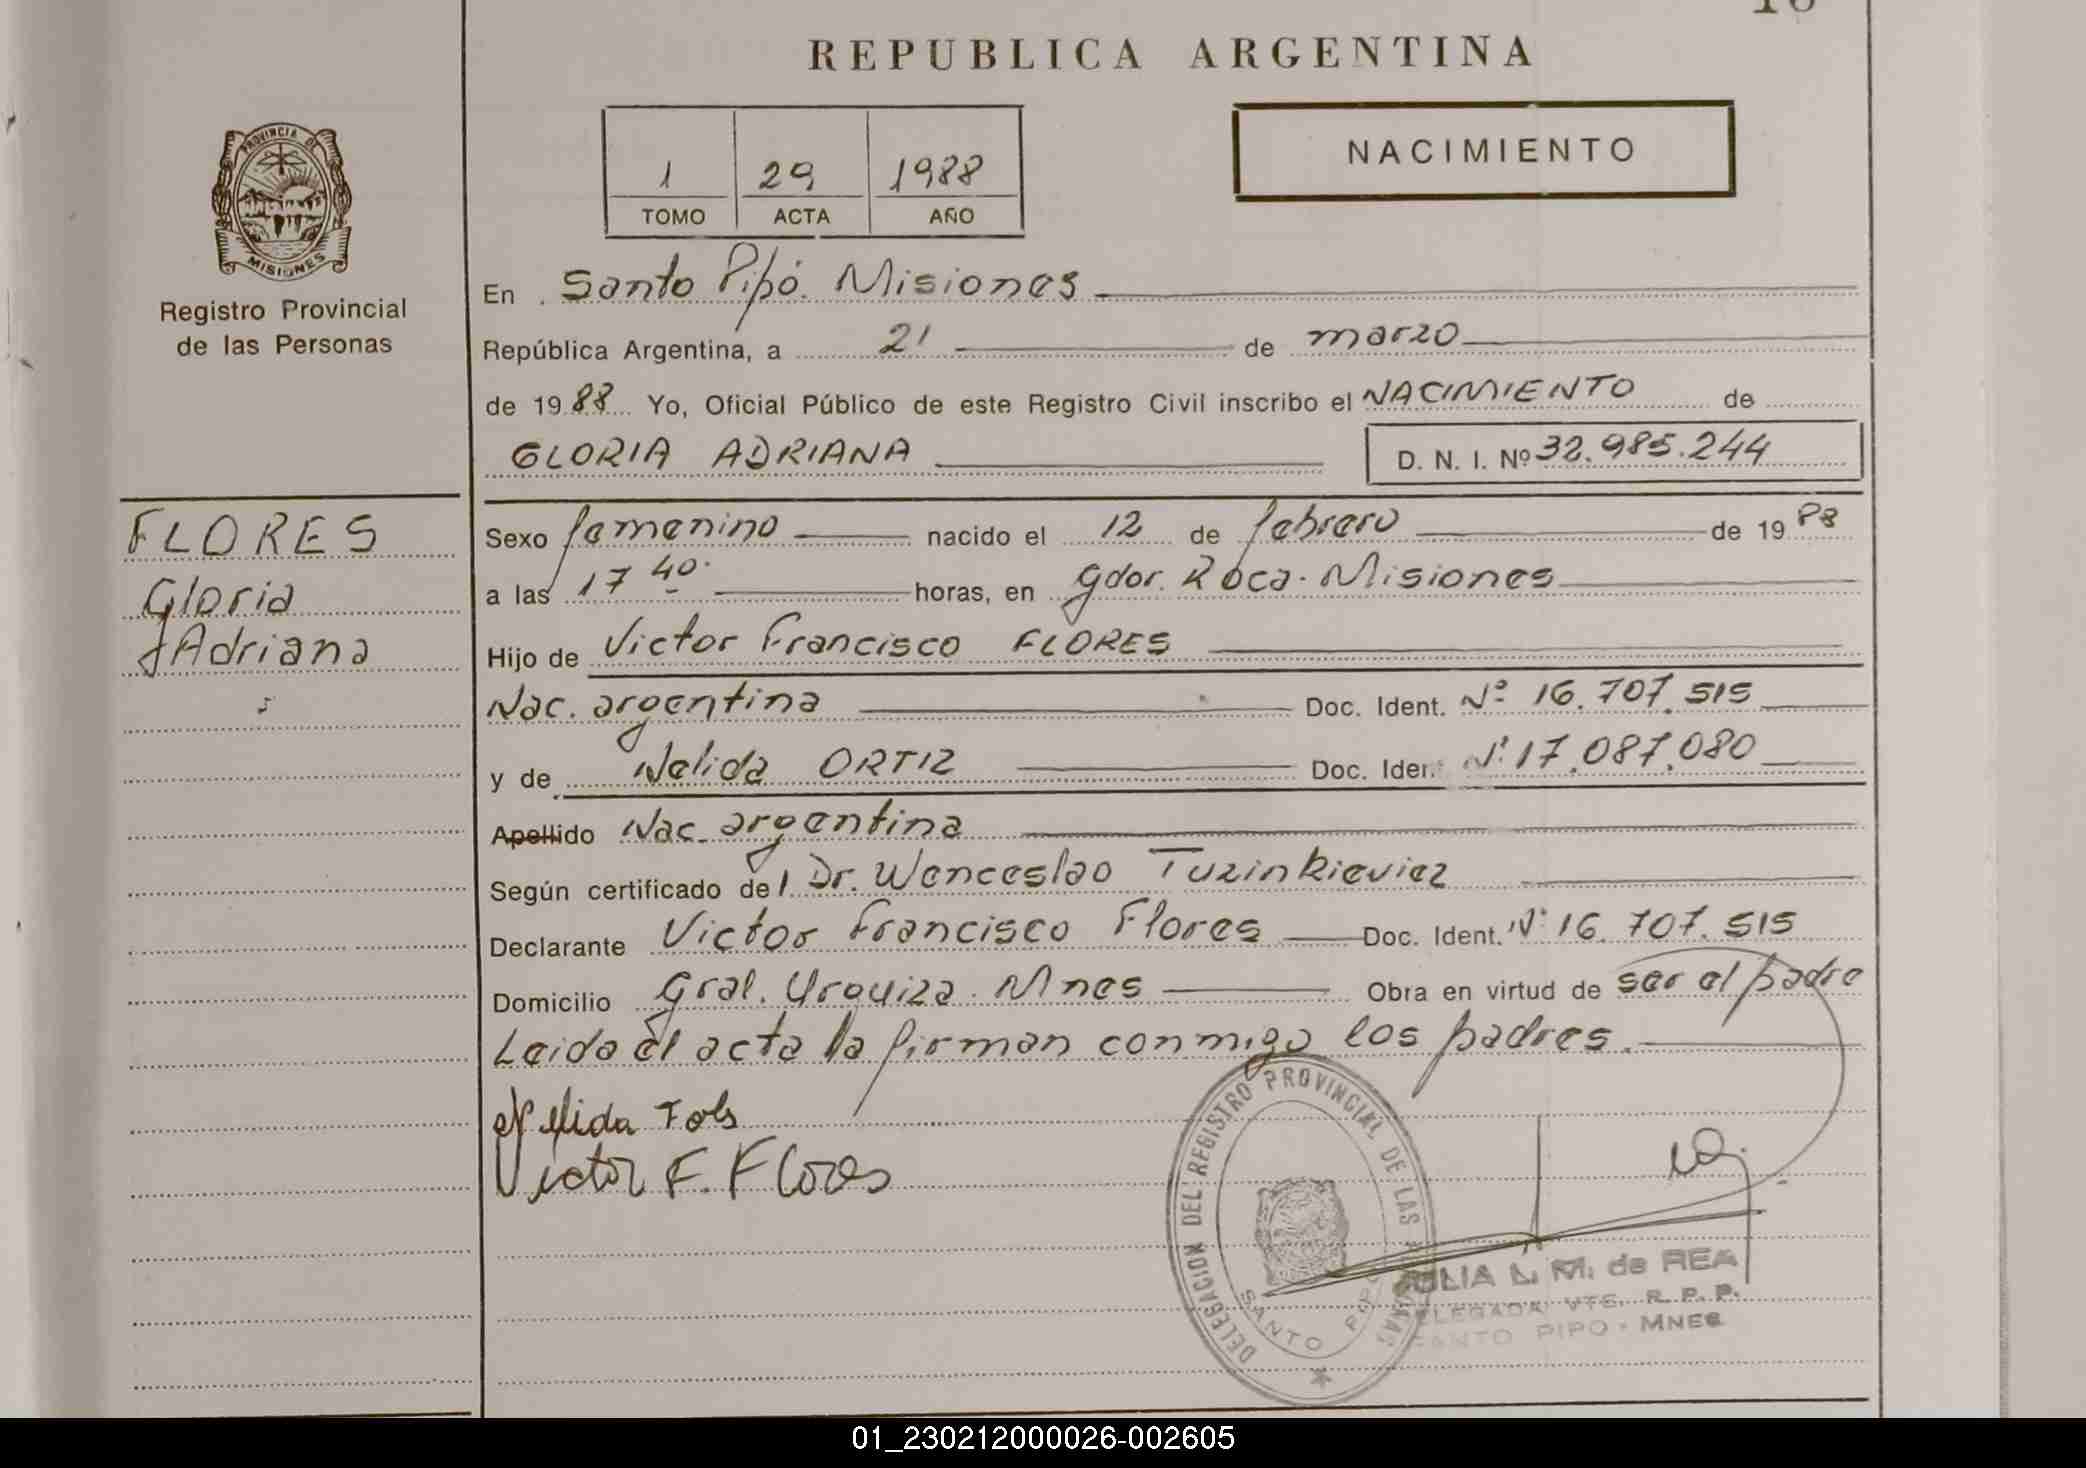 REPUBLICA ARGENTINA
1 29 1988
TOMO ACTA AÑO
NACIMIENTO
PROVINCIA DE MISIONES
Registro Provincial
de las Personas
En Santo Pipó. Misiones
República Argentina, a 21 de marzo
de 1988 Yo, Oficial Público de este Registro Civil inscribo el NACIMIENTO de
GLORIA ADRIANA D. N. I. Nº 32.985.244
FLORES
Gloria
Adriana
Sexo femenino nacido el 12 de febrero de 1988
a las 17 40. horas, en Gdor. Roca. Misiones
Hijo de Victor Francisco FLORES
Nac. argentina Doc. Ident. Nº 16.707.515
y de Nelida ORTIZ Doc. Ident. Nº 17.087.080
Apellido Nac. argentina
Según certificado del Dr. Wenceslao Tuzinkieviez
Declarante Victor Francisco Flores Doc. Ident. Nº 16.707.515
Domicilio Gral. Urquiza. Mnes Obra en virtud de ser el padre
Leida el acta la firman conmigo los padres.
Nelida
Victor F. Flores
DELEGACION DEL REGISTRO PROVINCIAL DE LAS PERSONAS
SANTO PIPO
JULIA L. M. de REA
DELEGADA VTE. R. P. P.
SANTO PIPO - MNES
01_230212000026-002605